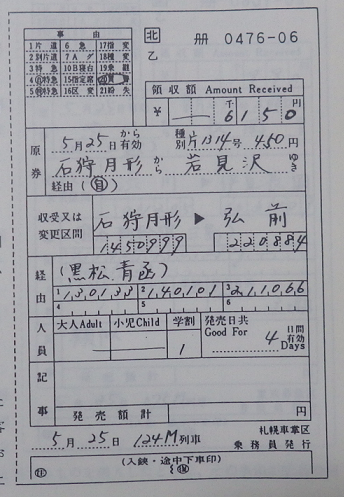 事由 北 冊 0476-06
乙
1片道 6急 17指変
2別片道 7Aグ 18種変
3特急 10B寝台 19乗継
15指定席
5 特急 16区変 21紛失
領収額 Amount Received
千 円
¥ 6150
原券 5月25日から有効 種別 片1314号 450円
石狩月形から 岩見沢ゆき
経由
収受又は変更区間 石狩月形 ▶ 弘前
1450999 220884
経由 (黒松青函)
1 130133 2 140101 3 211066
4 5 6
人員 大人Adult 小児Child 学割 発売日共 Good For 4日間有効 Days
1
記事
発売額計 円
5月25日 124M列車 札幌車掌区
乗務員発行
(入鋏・途中下車印)